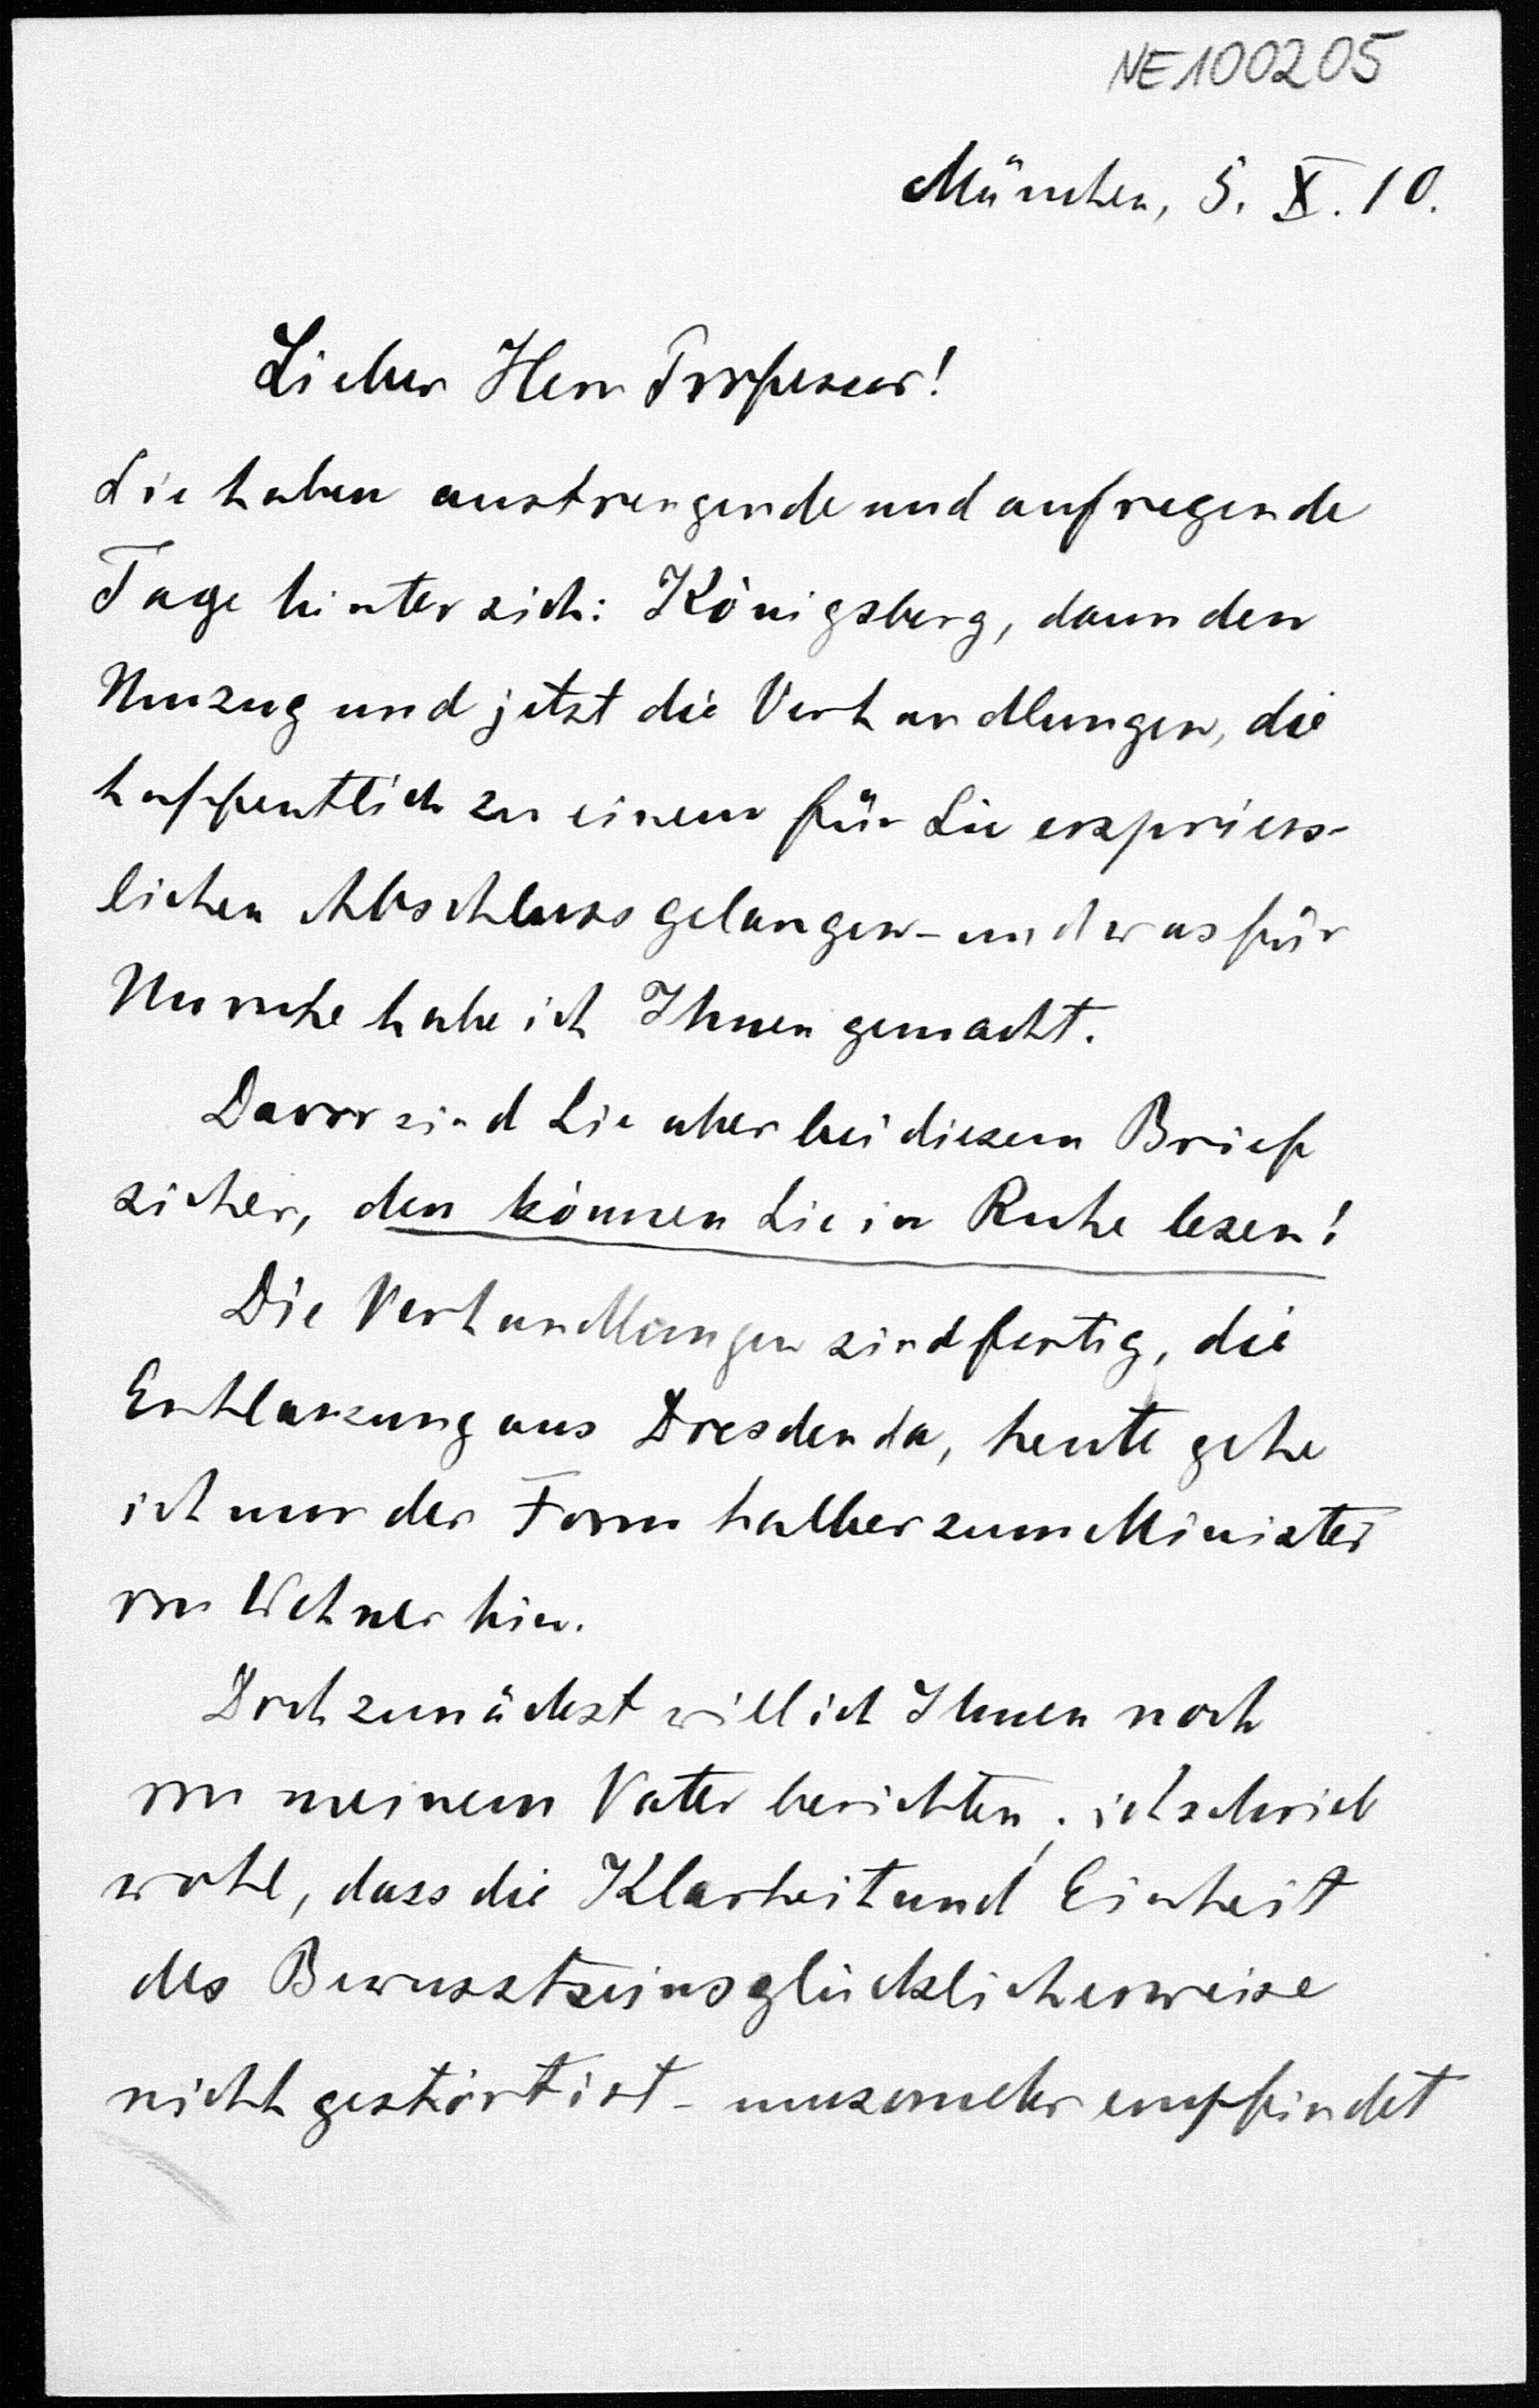 NE100205
München, 5. X. 10.
Lieber Herr Professor!
Sie haben anstrengende und aufregende
Tage hinter sich: Königsberg, dann den
Umzug und jetzt die Verhandlungen, die
hoffentlich zu einem für Sie erspriess-
lichen Abschluss gelangen - und was für
Unruhe habe ich Ihnen gemacht.
Davor sind Sie aber bei diesem Brief
sicher, den können Sie in Ruhe lesen!
Die Verhandlungen sind fertig, die
Entlassung aus Dresden da, heute gehe
ich nur der Form halber zum Minister
von Wehner hin.
Doch zunächst will ich Ihnen noch
von meinem Vater berichten; ich schrieb
wohl, dass die Klarheit und Einheit
des Bewusstseins glücklicherweise
nicht gestört ist - umsomehr empfindet